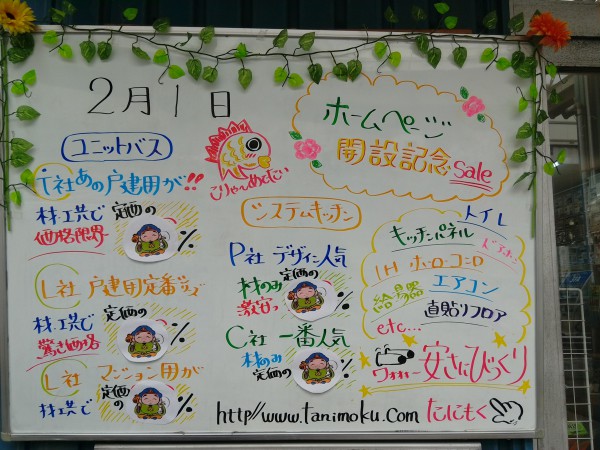 2月1日
ホームページ
開設記念 sale
ユニットバス
i社あの戸建用が!!
材工共で 定価の %
価格限界
こりゃ〜めでたい
システムキッチン
L社 戸建用定番シリーズ
材工共で 定価の %
驚き価格
L社 マンション用が
材工共で 定価の %
P社 デザイン人気
材のみ 定価の %
激安っ
C社 一番人気
材のみ 定価の %
トイレ
キッチンパネル
ドアホン
IH ホーローコンロ
給湯器 エアコン
直貼りフロア
etc...
ワォォー 安さにびっくり
http//www.tanimoku.com たにもく